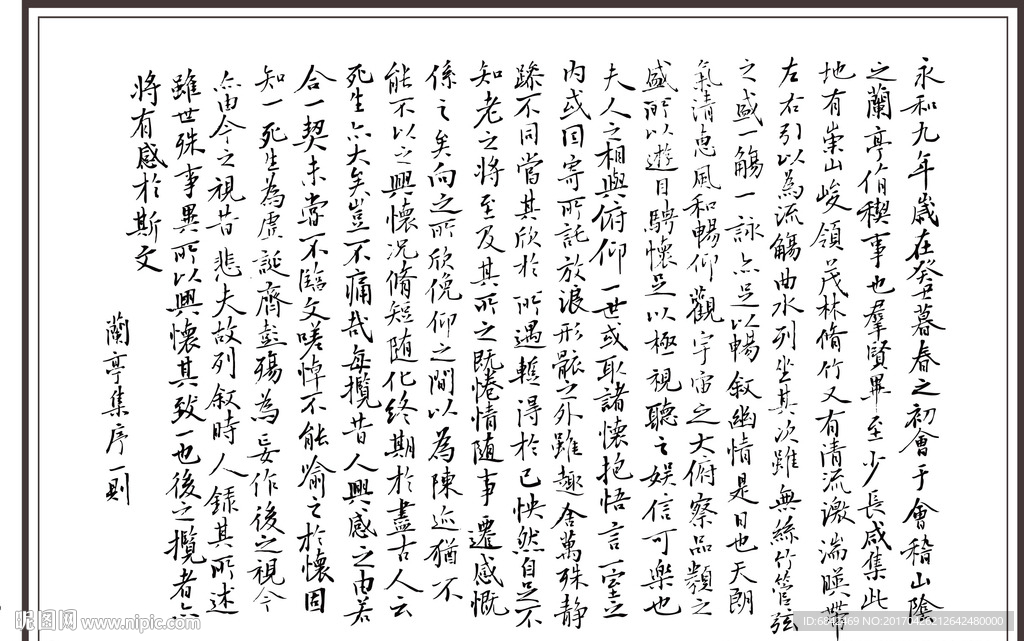 永和九年歲在癸丑暮春之初會于會稽山陰
之蘭亭脩稧事也羣賢畢至少長咸集此
地有崇山峻領茂林脩竹又有清流激湍暎帶
左右引以為流觴曲水列坐其次雖無絲竹管弦
之盛一觴一詠亦足以暢敘幽情是日也天朗
氣清惠風和暢仰觀宇宙之大俯察品類之
盛所以遊目騁懷足以極視聽之娛信可樂也
夫人之相與俯仰一世或取諸懷抱悟言一室之
內或因寄所託放浪形骸之外雖趣舍萬殊靜
躁不同當其欣於所遇暫得於己怏然自足不
知老之將至及其所之既惓情隨事遷感慨
係之矣向之所欣俛仰之間以為陳迹猶不
能不以之興懷況脩短随化終期於盡古人云
死生亦大矣豈不痛哉每攬昔人興感之由若
合一契未嘗不臨文嗟悼不能喻之於懷固
知一死生為虛誕齊彭殤為妄作後之視今
亦由今之視昔悲夫故列敘時人錄其所述
雖世殊事異所以興懷其致一也後之攬者亦
將有感於斯文
蘭亭集序一則
昵图网 www.nipic.com
ID:6842469 NO:20170426212642480000